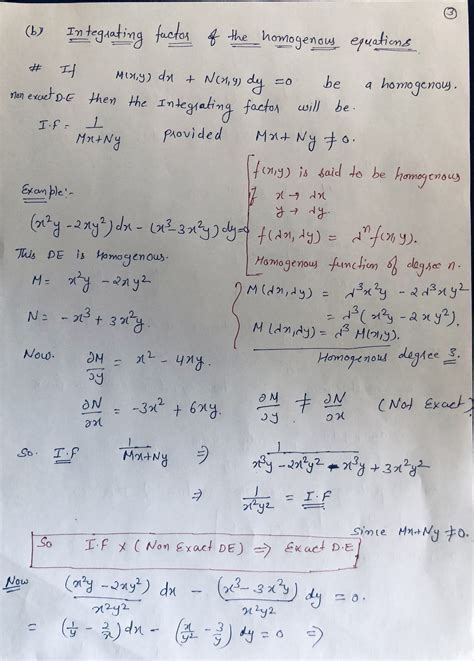 ③
(b) Integrating factor of the homogenous equations.
# If M(x,y) dx + N(x,y) dy = 0 be a homogenous.
non exact D.E then the Integrating factor will be.
I.F = 1/(Mx+Ny) provided Mx+Ny ≠ 0.
f(x,y) is said to be homogenous
if x → λx
y → λy
f(λx, λy) = λⁿ f(x,y).
Homogenous function of degree n.
Example:-
(x²y - 2xy²) dx - (x³ - 3x²y) dy = 0
This DE is Homogenous.
M = x²y - 2xy²
N = -x³ + 3x²y.
M(λx, λy) = λ³x²y - 2λ³xy²
= λ³(x²y - 2xy²).
M(λx, λy) = λ³ M(x,y).
Homogenous degree 3.
Now. ∂M/∂y = x² - 4xy.
∂N/∂x = -3x² + 6xy. ∂M/∂y ≠ ∂N/∂x (Not Exact)
So. I.F 1/(Mx+Ny) ⇒ 1/(x³y - 2x²y² - x³y + 3x²y²)
⇒ 1/(x²y²) = I.F
Since Mx+Ny ≠ 0.
So I.F × (Non Exact DE) ⇒ Exact D.E
Now (x²y - 2xy²)/(x²y²) dx - (x³ - 3x²y)/(x²y²) dy = 0.
= (1/y - 2/x) dx - (x/y² - 3/y) dy = 0 ⇒